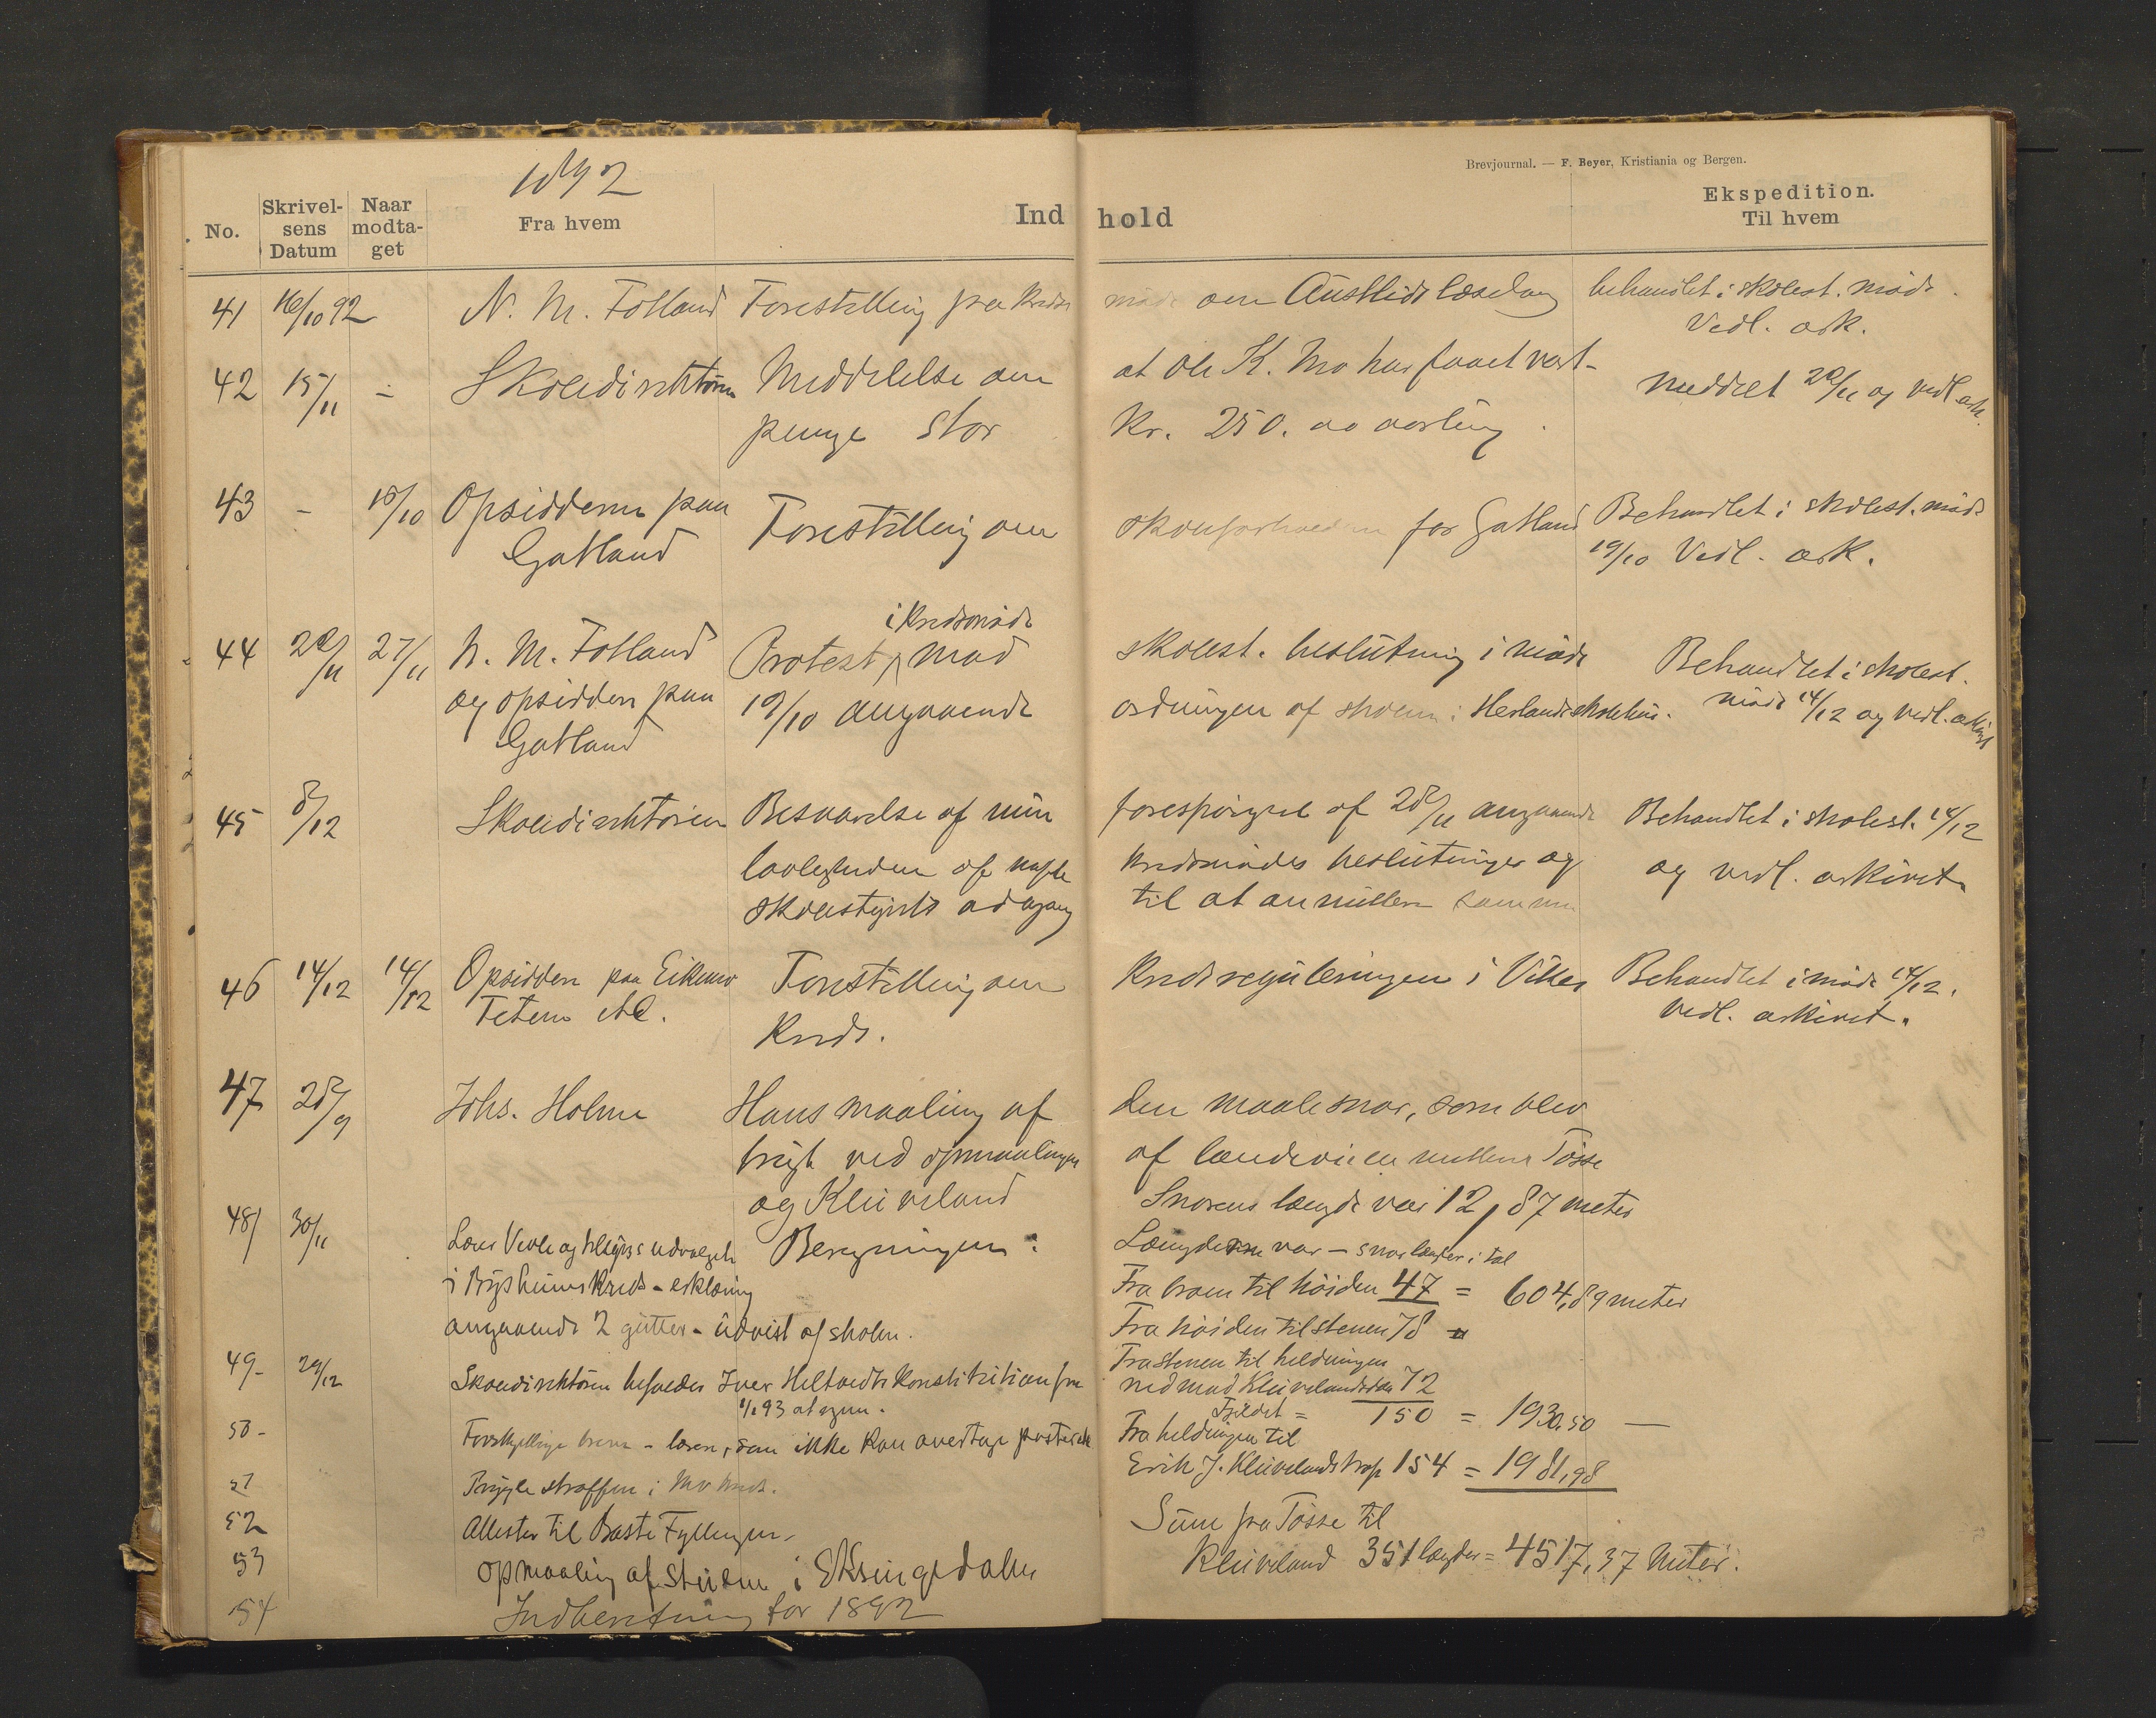 1892
Brevjournal. — F. Beyer, Kristiania og Bergen.
No. Skrivelsens Datum Naar modtaget Fra hvem Indhold Ekspedition. Til hvem
41 16/10 92 N. M. Fotland Forestilling fra Kreds møde om Austlids læsedag behandlet i skolest. møde.
Vedl. ark.
42 15/11 - Skoledirektøren Meddelelse om at Ole K. Mo har faaet vart- meddelt 20/11 og vedl. ark.
penge stor Kr. 250. aarling.
43 - 15/10 Opsidderne paa Gatland Forestilling om skoleforholdene for Gatland Behandlet i skolest. møde
19/10 Vedl. ark.
44 22/11 27/11 N. M. Fotland Protest i Kredsmøde mod skolest. beslutning i møde Behandlet i skolest.
og opsiddere paa 19/10 angaaende ordningen af skolen i Herlandsskolehus. møde 14/12 og vedl. arkivet
Gatland
45 8/12 Skoledirektøren Besvarelse af min forespørgsel af 28/11 angaaende Behandlet i skolest. 14/12
lovligheden af kredsmødes beslutninger og og vedl. arkivet.
skolestyrets adgang til at annullere samme
46 14/12 14/12 Opsiddere paa Eikemo Forestilling om Kredsreguleringen i Vikes Behandlet i møde 14/12.
etc. Kreds. Vedl. arkivet.
47 28/9 Johs. Holme Hans maaling af den maalesnor, som blev
brugt ved opmaalingen af landeveien mellem Tøsse
og Kleiveland Snorens længde var 12,87 meter
48 30/11 Beregningen: Længderne var - snorlængder i tal
og tilsynsudvalget
i Kreds - erklæring Fra til høiden 47 = 604,89 meter
angaaende 2 gutter - udvist af skolen. Fra høiden til stenen 78 "
Fra stenen til heldningen
49- 29/12 Skoledirektøren Iver Konstitution fra ned mod 72
1/1 93 at regne. 150 = 1930,50 —
50- Forskjellige breve - lærere, som ikke kan overtage posten Fra heldningen til
Erik J. Kleivelands 154 = 1981,98
51 Prygle straffen i Mo kreds.
52 Attester til Baste Fyllingen. Sum fra Tøsse til
53 Opmaaling af i Eksingedalen Kleiveland 351 længder = 4517,37 Meter.
54 Indberetning for 1892